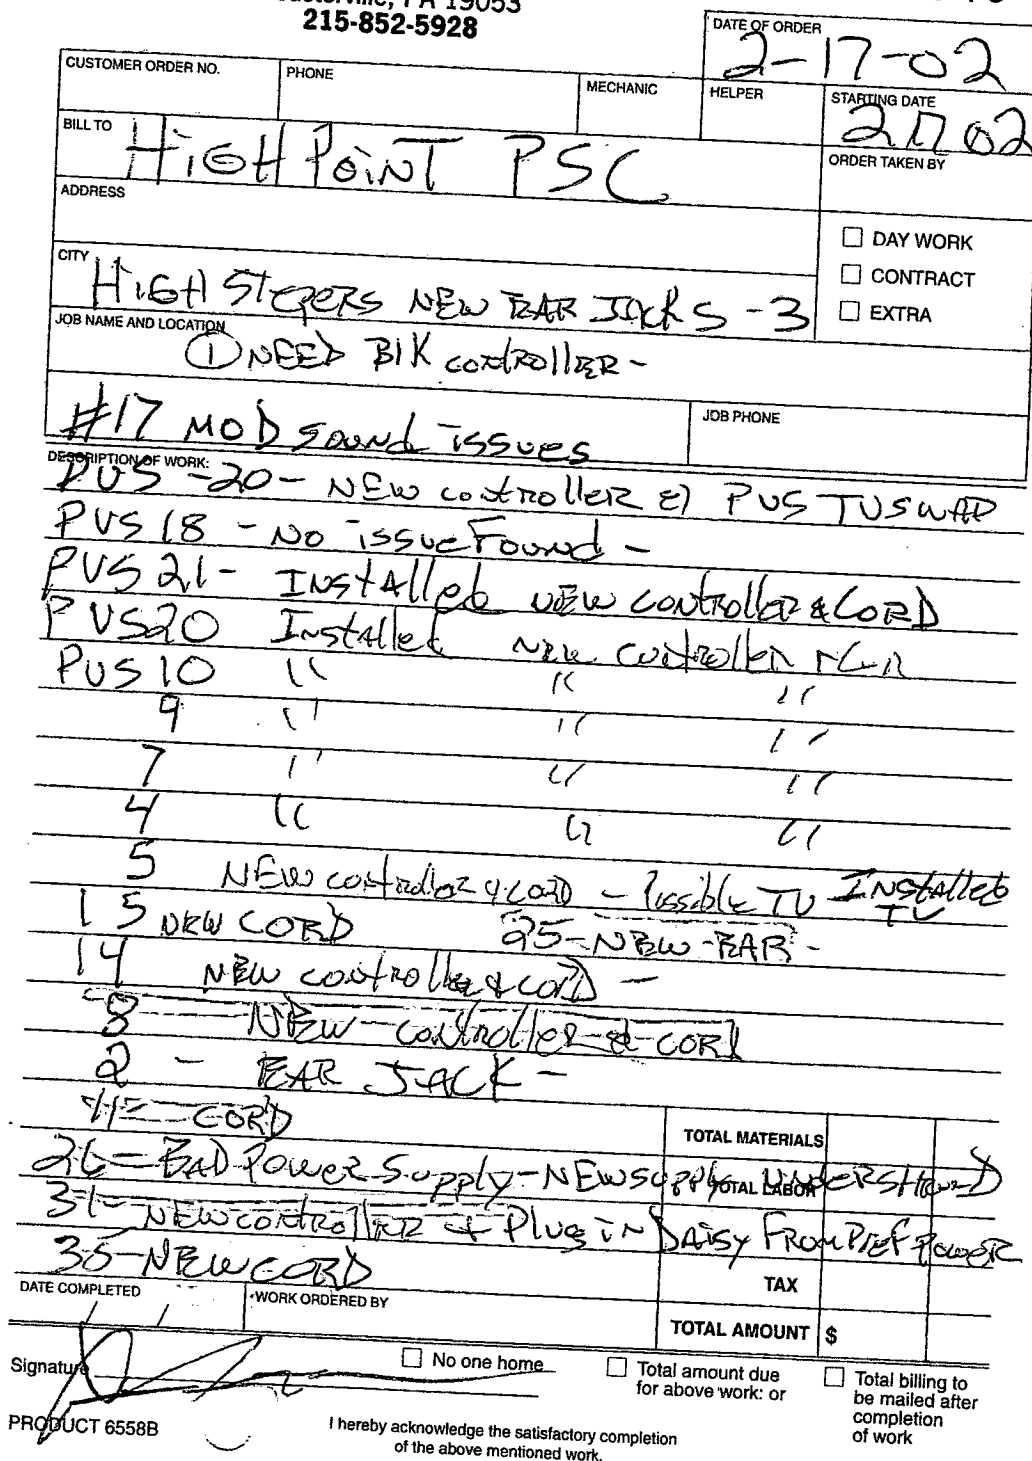 PA 19053
215-852-5928
DATE OF ORDER
2-17-02
CUSTOMER ORDER NO.
PHONE
MECHANIC
HELPER
STARTING DATE
2 17 02
BILL TO
HIGH POINT PSC
ORDER TAKEN BY
ADDRESS
DAY WORK
CITY
HIGH STEPERS NEW EAR JACKS - 3
CONTRACT
EXTRA
JOB NAME AND LOCATION
① NEED BIK controller -
#17 MOD sound issues
JOB PHONE
DESCRIPTION OF WORK:
PUS - 20 - NEW controller & PUS TU SWAP
PVS 18 - No issue Found -
PVS 21 - Installed NEW controller & CORD
PVS20 Installed NEW controller
PUS 10 " " "
9 " " "
7 " " "
4 " " "
5 NEW controller & CORD - Possible TU Installed TV
15 NEW CORD 25 - NEW EAR -
14 NEW controller & CORD -
8 NEW controller & CORD
2 - EAR JACK -
CORD
TOTAL MATERIALS
26 - BAD Power Supply - NEW supply UNDER
TOTAL LABOR
31 - NEW controller & Plug in DAISY FROM power
35 - NEW CORD
TAX
DATE COMPLETED
/ /
WORK ORDERED BY
TOTAL AMOUNT $
Signature
No one home
Total amount due
for above work: or
Total billing to
be mailed after
completion
of work
PRODUCT 6558B
I hereby acknowledge the satisfactory completion
of the above mentioned work.